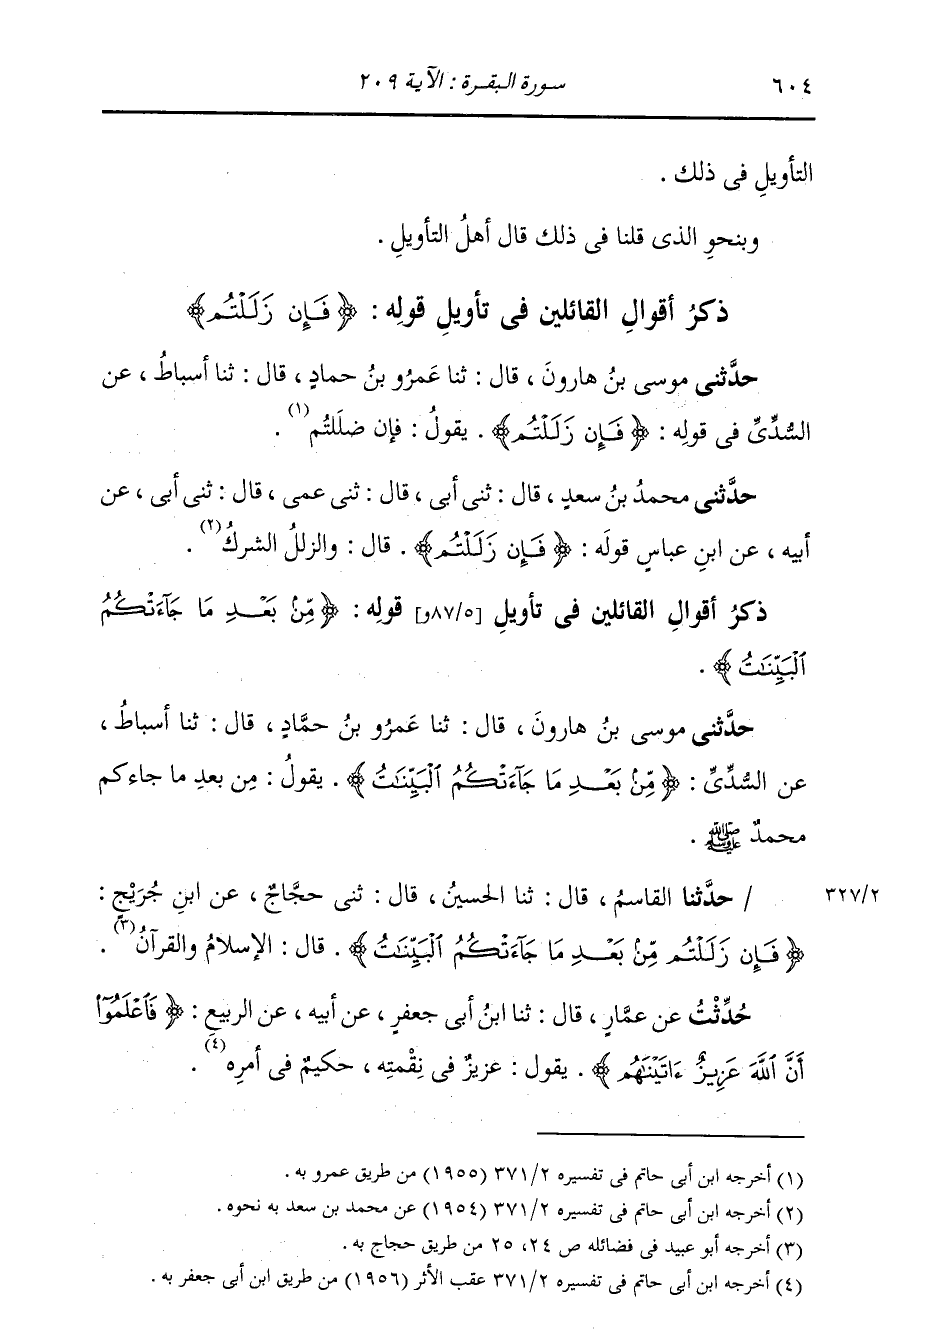 ٦٠٤ سورة البقرة : الآية ٢٠٩
التأويلِ فى ذلك .
وبنحوِ الذى قلنا فى ذلك قال أهلُ التأويلِ .
ذكرُ أقوالِ القائلين فى تأويلِ قولِه : ﴿ فَإِن زَلَلْتُم ﴾
حدَّثنى موسى بنُ هارونَ ، قال : ثنا عَمرُو بنُ حمادٍ ، قال : ثنا أسباطُ ، عن
السُّدِّىِّ فى قولِه : ﴿ فَإِن زَلَلْتُم ﴾ . يقولُ : فإن ضلَلتُم (١) .
حدَّثنى محمدُ بنُ سعدٍ ، قال : ثنى أبى ، قال : ثنى عمى ، قال : ثنى أبى ، عن
أبيه ، عن ابنِ عباسٍ قولَه : ﴿ فَإِن زَلَلْتُم ﴾ . قال : والزللُ الشركُ (٢) .
ذكرُ أقوالِ القائلين فى تأويلِ [٨٧/٥و] قولِه : ﴿ مِّنۢ بَعْدِ مَا جَآءَتْكُمُ
ٱلْبَيِّنَٰتُ ﴾ .
حدَّثنى موسى بنُ هارونَ ، قال : ثنا عَمرُو بنُ حمَّادٍ ، قال : ثنا أسباطُ ،
عن السُّدِّىِّ : ﴿ مِّنۢ بَعْدِ مَا جَآءَتْكُمُ ٱلْبَيِّنَٰتُ ﴾ . يقولُ : مِن بعدِ ما جاءكم
محمدٌ ﷺ .
٣٢٧/٢ / حدَّثنا القاسمُ ، قال : ثنا الحسينُ ، قال : ثنى حجَّاجٌ ، عن ابنِ جُرَيْجٍ :
﴿ فَإِن زَلَلْتُم مِّنۢ بَعْدِ مَا جَآءَتْكُمُ ٱلْبَيِّنَٰتُ ﴾ . قال : الإسلامُ والقرآنُ (٣) .
حُدِّثْتُ عن عمَّارٍ ، قال : ثنا ابنُ أبى جعفرٍ ، عن أبيه ، عن الربيعِ : ﴿ فَٱعْلَمُوٓا۟
أَنَّ ٱللَّهَ عَزِيزٌ ءَاتَيْنَٰهُم ﴾ . يقول : عزيزٌ فى نِقْمتِه ، حكيمٌ فى أمرِه (٤) .
(١) أخرجه ابن أبى حاتم فى تفسيره ٣٧١/٢ (١٩٥٥) من طريق عمرو به .
(٢) أخرجه ابن أبى حاتم فى تفسيره ٣٧١/٢ (١٩٥٤) عن محمد بن سعد به نحوه .
(٣) أخرجه أبو عبيد فى فضائله ص ٢٤، ٢٥ من طريق حجاج به .
(٤) أخرجه ابن أبى حاتم فى تفسيره ٣٧١/٢ عقب الأثر (١٩٥٦) من طريق ابن أبى جعفر به .